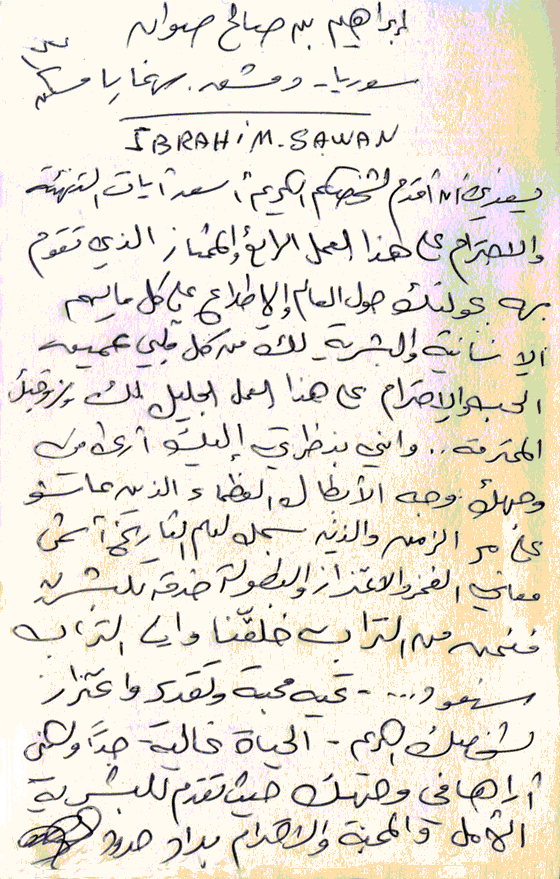 ابراهيم بن صالح صوان
سوريا - دمشق -
IBRAHiM - SAWAN
يسعدني أن أقدم لشخصكم الكريم أسعد آيات التهنئة
والاحترام على هذا العمل الرائع والممتاز الذي تقوم
به بجولتك حول العالم والاطلاع على كل ما يهم
الإنسانية والبشرية - لك من كل قلبي عميق
الحب والاحترام على هذا العمل الجليل لك وزوجتك
المحترمة .. وإنني بنظرتي إليك أرى من
وجهك وجه الأبطال العظماء الذين عاشو
على مر الزمن والذين سجل لهم التاريخ أسمى
معاني الفخر والاعتزاز والبطولة خدمة للبشرية
فنحن من التراب خلقنا وإلى التراب
سنعود ... - تحية محبة وتقدير واعتزاز
لشخصك الكريم - الحياة غالية جداً ولكني
أراها في وجهك حيث تقدم للبشرية
الأمل والمحبة والاحترام بلا حدود